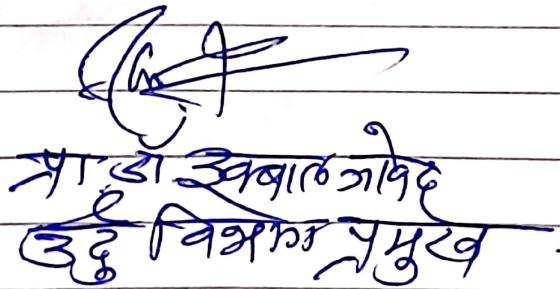 प्रा. डॉ इक्बाल जावेद
उर्दु विभाग प्रमुख